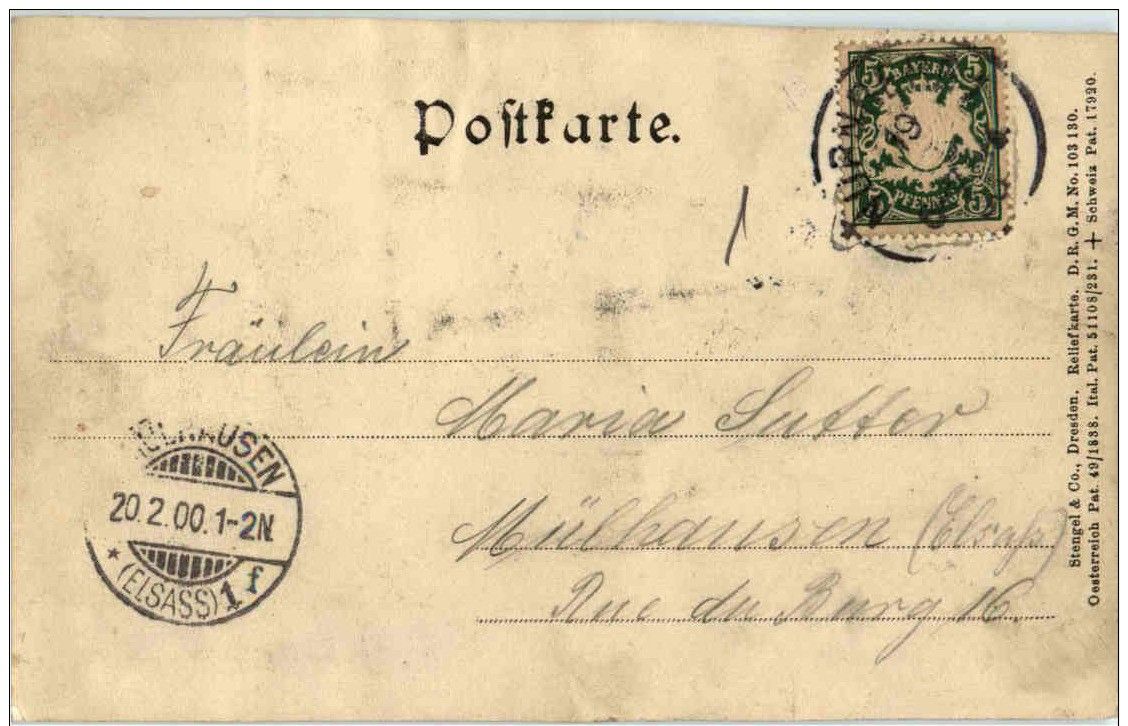 Postkarte.
5 BAYERN 5
5 PFENNIG 5
NÜRNB
19
1
Fräulein
Maria Sutter
Mülhausen (Elsass)
Rue du Bourg 16.
MÜLHAUSEN
20.2.00.1-2N.
* (ELSASS) 1 f
Stengel & Co., Dresden. Reliefkarte. D. R. G. M. No. 103 130.
Oesterreich Pat. 49/1838. Ital. Pat. 51108/231. + Schweiz Pat. 17920.